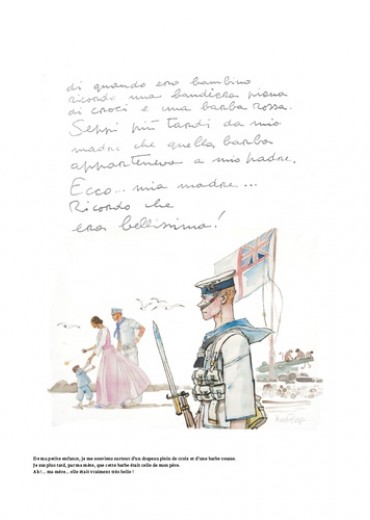 di quando ero bambino
ricordo una bandiera piena
di croci e una barba rossa.
Seppi più tardi da mio
madre che quella barba
apparteneva a mio padre.
Ecco... mia madre...
Ricordo che
era bellissima!
De ma petite enfance, je me souviens surtout d'un drapeau plein de croix et d'une barbe rousse.
Je sus plus tard, par ma mère, que cette barbe était celle de mon père.
Ah!... ma mère... elle était vraiment très belle !